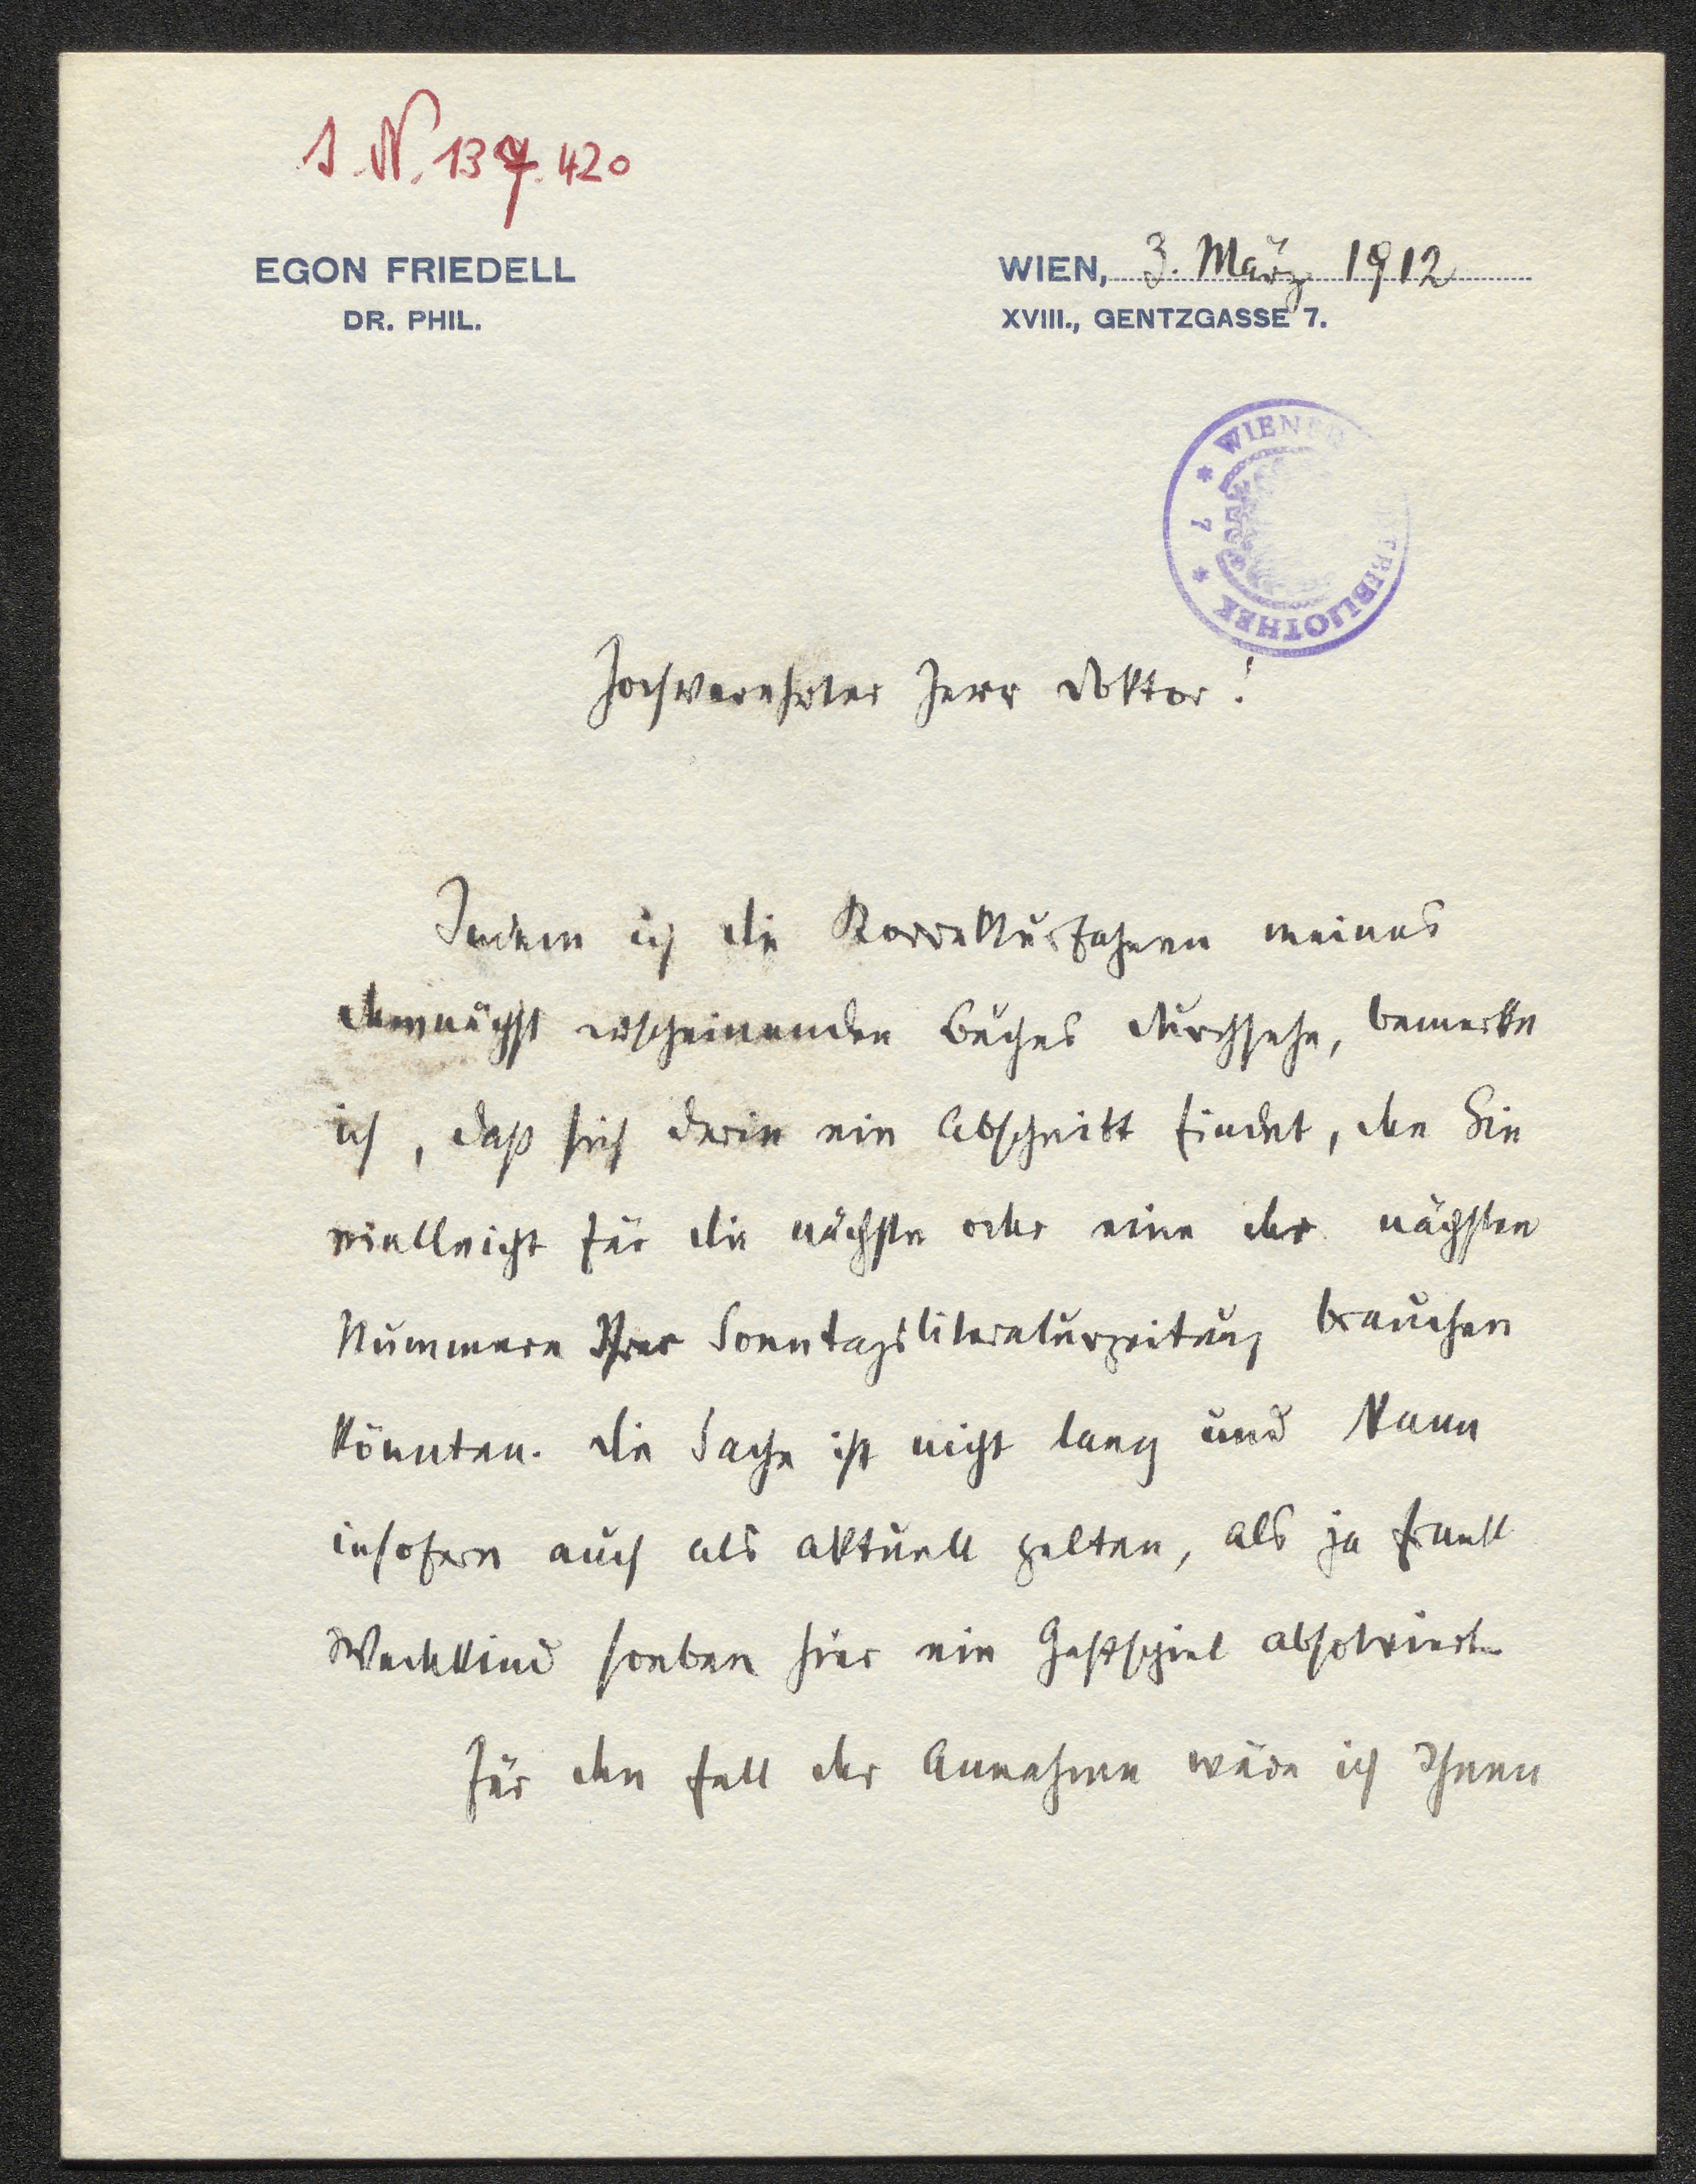 I.N. 137.420
EGON FRIEDELL
DR. PHIL.
WIEN, 3. März 1912
XVIII., GENTZGASSE 7.
* WIENER BIBLIOTHEK * 7
Hochverehrter Herr Doktor!
Indem ich die Korrekturfahnen meines
demnächst erscheinenden Buches durchsehe, bemerke
ich, daß sich darin ein Abschnitt findet, den Sie
vielleicht für die nächste oder eine der nächsten
Nummern Ihrer Sonntagsliteraturzeitung brauchen
könnten. Die Sache ist nicht lang und kann
insofern auch als aktuell gelten, als ja Frank
Wedekind soeben hier ein Gastspiel absolvierte
Für den Fall der Annahme wäre ich Ihnen